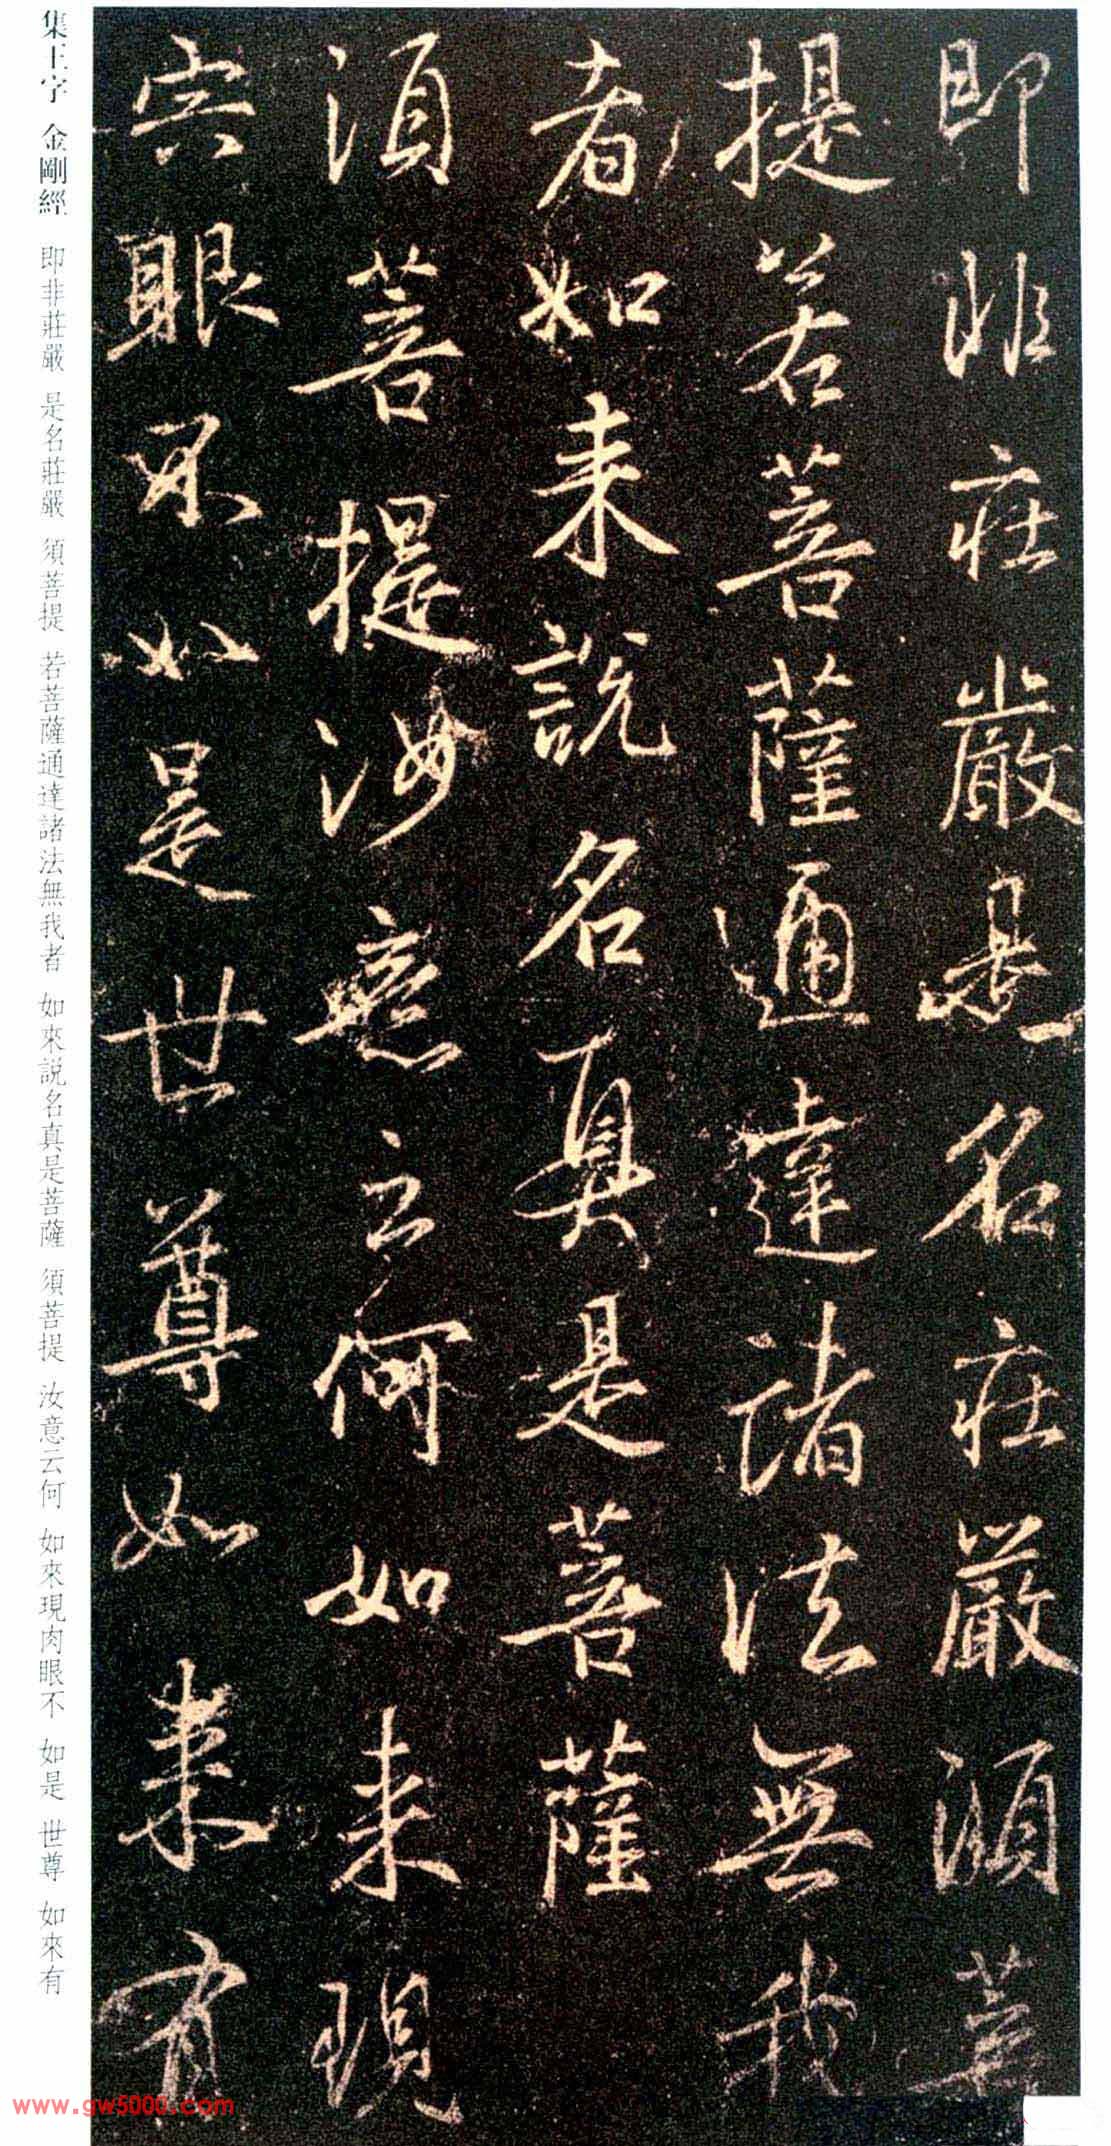 即非莊嚴是名莊嚴須菩
提若菩薩通達諸法無我
者如来說名真是菩薩
須菩提汝意云何如来現
宍眼不如是世尊如來有
集王字 金剛經 即非莊嚴 是名莊嚴 須菩提 若菩薩通達諸法無我者 如來説名真是菩薩 須菩提 汝意云何 如來現肉眼不 如是 世尊 如來有
www.gw5000.com